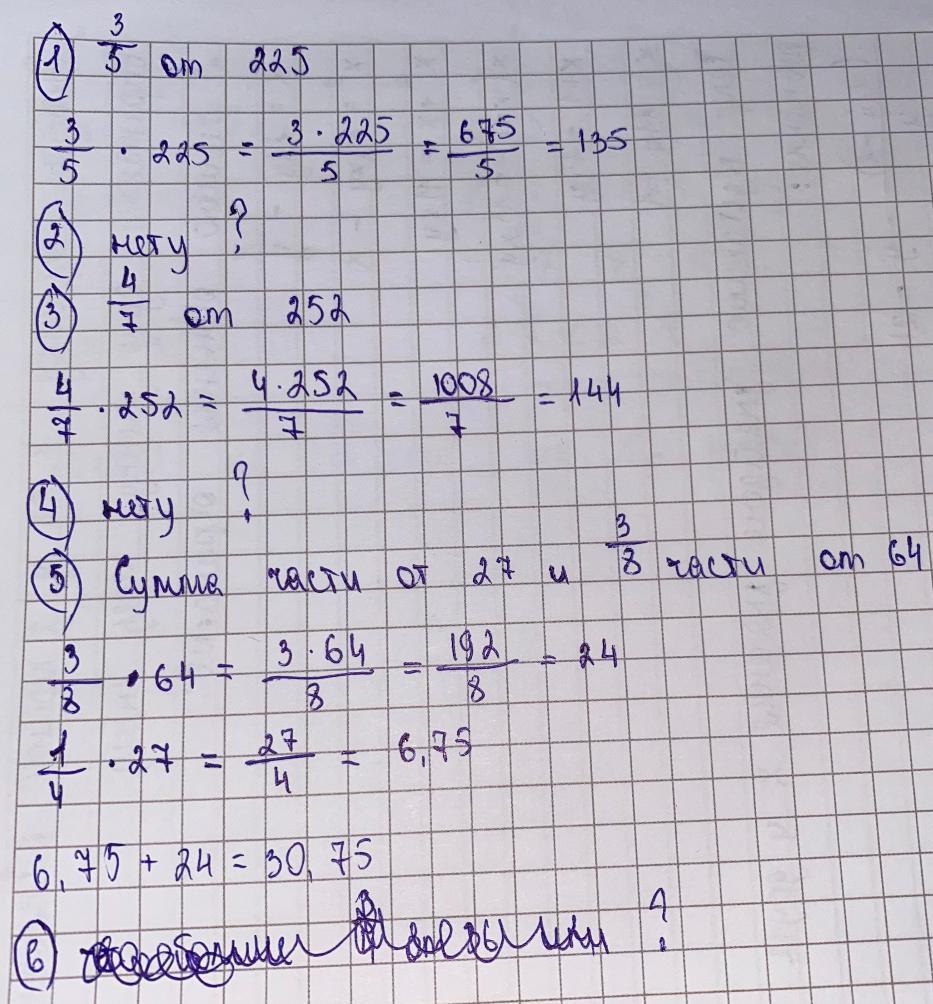 ① 3/5 от 225
3/5 · 225 = 3 · 225/5 = 675/5 = 135
② нету ?
③ 4/7 от 252
4/7 · 252 = 4 · 252/7 = 1008/7 = 144
④ нету ?
⑤ Сумма части от 27 и 3/8 части от 64
3/8 · 64 = 3 · 64/8 = 192/8 = 24
1/4 · 27 = 27/4 = 6,75
6,75 + 24 = 30,75
⑥ ?